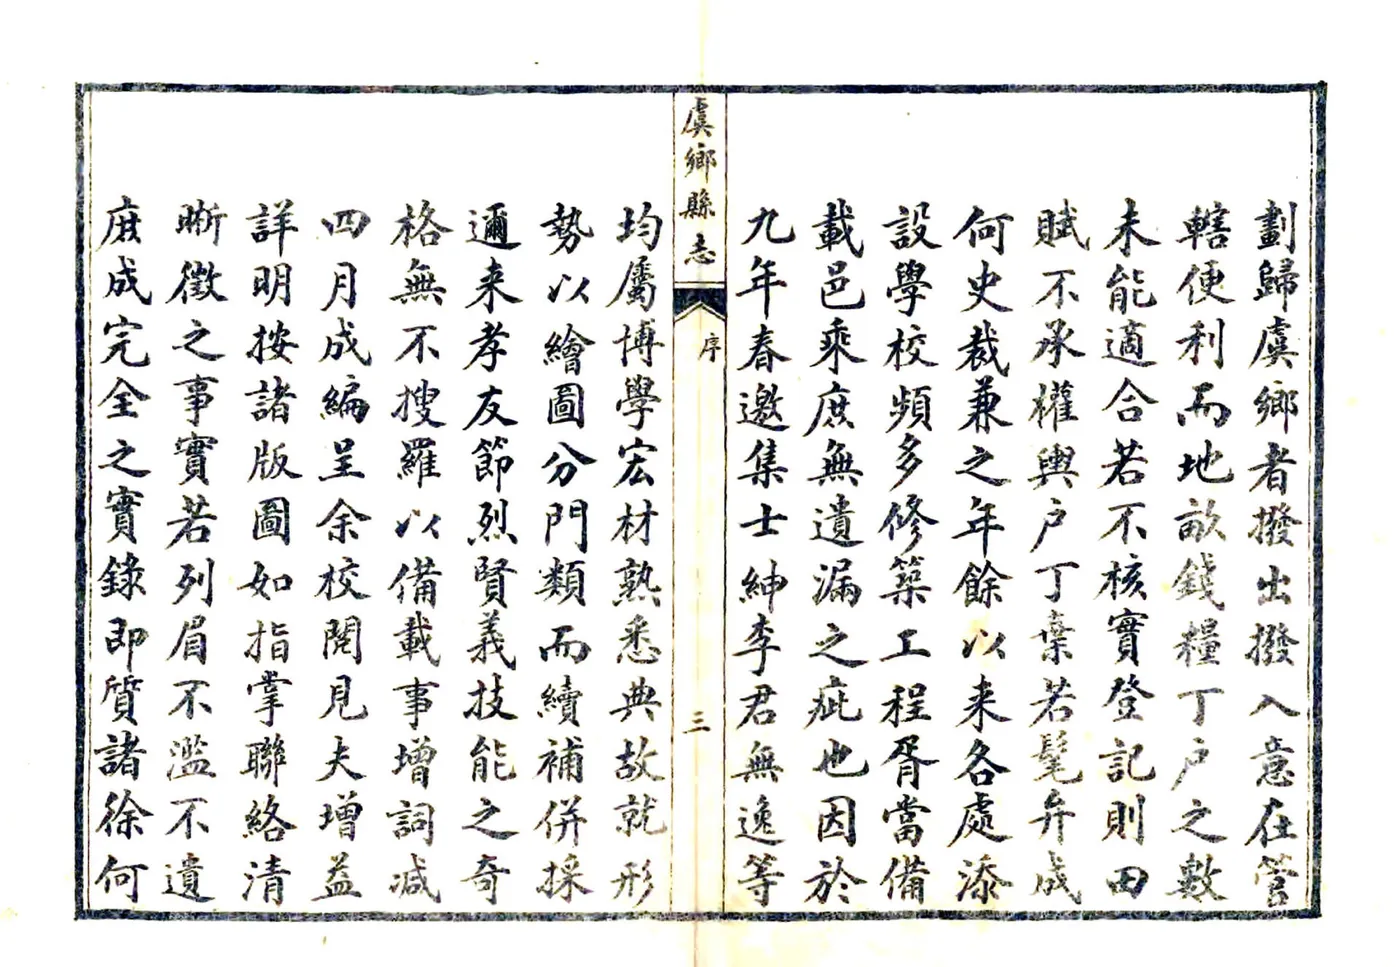 劃歸虞鄉者撥出撥入意在管
轄便利而地畝錢糧丁户之數
未能適合若不核實登記則田
賦不承權輿户丁棄若髦弁成
何史裁兼之年餘以来各處添
設學校頻多修築工程胥當備
載邑乘庶無遺漏之疵也因於
九年春邀集士紳李君無逸等
虞鄉縣志
序
三
均屬博學宏材熟悉典故就形
勢以繪圖分門類而續補併採
邇来孝友節烈賢義技能之奇
格無不搜羅以備載事增詞减
四月成編呈余校閱見夫增益
詳明按諸版圖如指掌聯絡清
晰徵之事實若列眉不濫不遺
庶成完全之實錄即質諸徐何